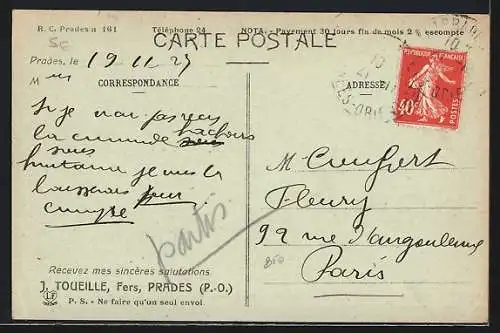 R. C. Prades n 161 Téléphone 24 NOTA. - Payement 30 jours fin de mois 2% escompte
5€
CARTE POSTALE
Prades, le 19 11 27
M
CORRESPONDANCE
ADRESSE
REPUBLIQUE FRANÇAISE
POSTES
40c
Si je n'ai pas reçu
la commande hachoirs
huitaine je vous la
laisserais pour
compte
partis
M.
Fleury
92 rue d'angouleme
Paris
850
Recevez mes sincères salutations.
J. TOUEILLE, Fers, PRADES (P.-O.)
P. S. - Ne faire qu'un seul envoi.